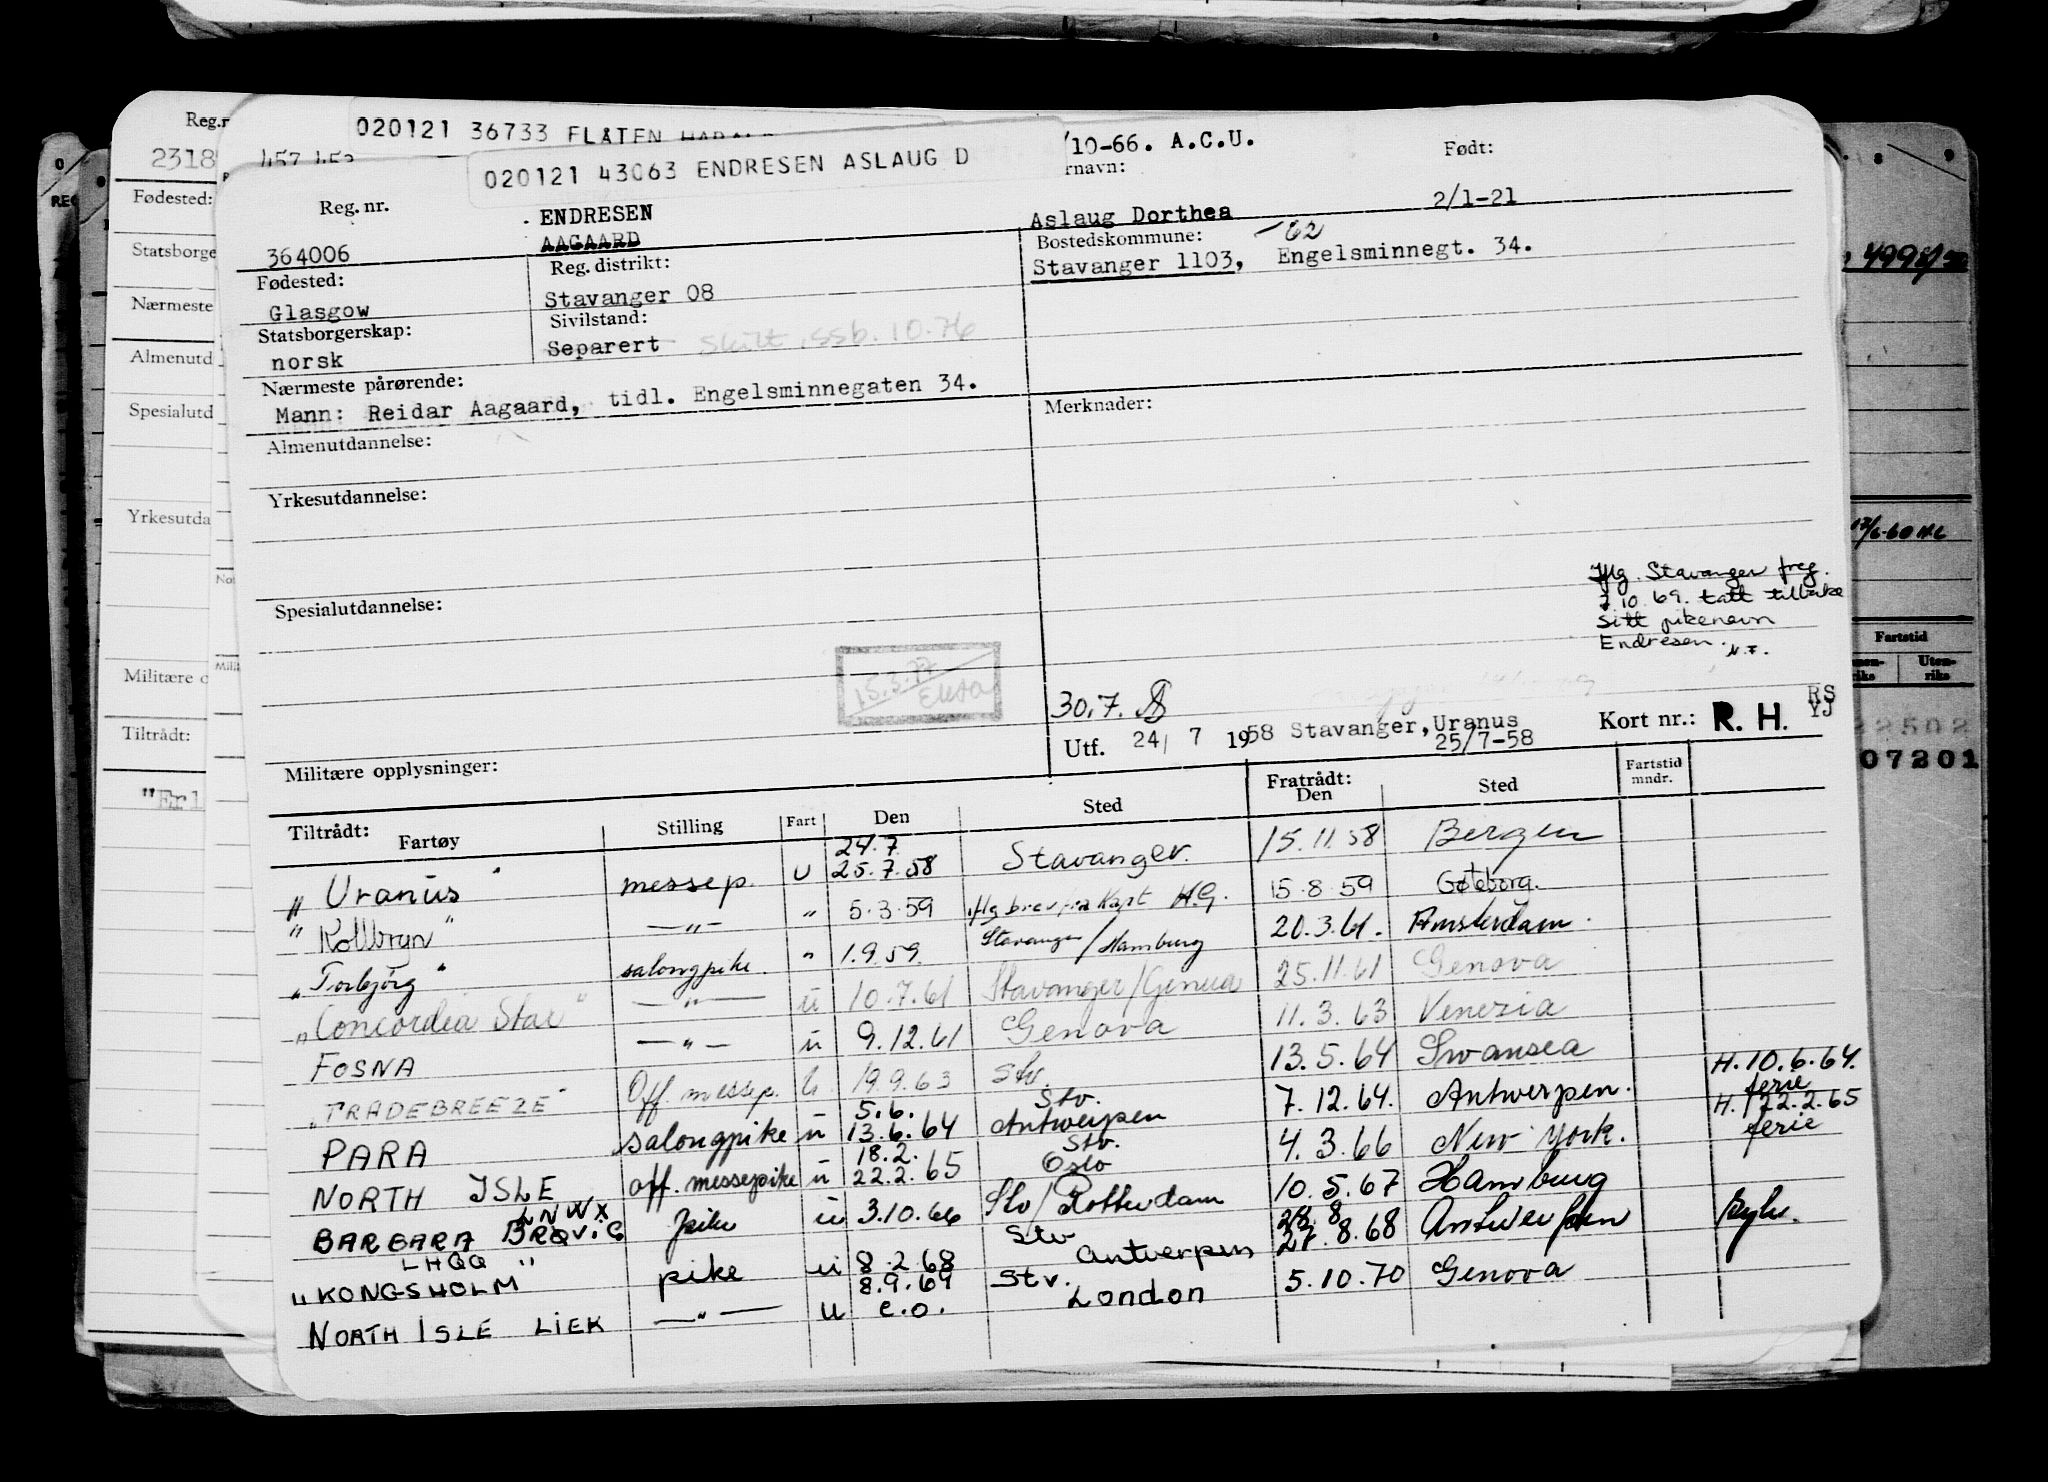 020121 36733 FLATEN HARALD
/10-66. A.C.U.
020121 43063 ENDRESEN ASLAUG D
rnavn:
Født:
Reg.nr. 2318
457 453
Reg. nr.
ENDRESEN
Aslaug Dorthea
2/1-21
364006
AAGAARD
Bostedskommune: -62
Fødested:
Reg. distrikt:
Stavanger 1103, Engelsminnegt. 34.
Glasgow
Stavanger 08
Statsborgerskap:
Sivilstand:
norsk
Separert Skilt, ssb. 10.76
Nærmeste pårørende:
Mann: Reidar Aagaard, tidl. Engelsminnegaten 34.
Merknader:
Almenutdannelse:
Yrkesutdannelse:
Spesialutdannelse:
Iflg. Stavanger freg.
2.10.69. tatt tilbake
sitt pikenavn
Endresen. N.F.
15.3.77
30.7.
Utf. 24/ 7 1958 Stavanger, Uranus
25/7-58
Kort nr.: R. H. RS
YJ
Militære opplysninger:
Tiltrådt:
Fartøy
Stilling
Fart
Den
Sted
Fratrådt:
Den
Sted
Fartstid
mndr.
"Uranus" messep. U 24.7 25.7.58 Stavanger. 15.11.58 Bergen
"Kollbryn" —"— " 5.3.59 iflg brev fra Kapt H.G. 15.8.59 Gøteborg.
"Torbjørg" salongpike. " 1.9.59. Stavanger/Hamburg 20.3.61. Amsterdam.
"Concordia Star" —"— u 10.7.61 Stavanger/Genua 25.11.61 Genova
FOSNA —"— u 9.12.61 Genova 11.3.63 Venezia
"TRADEBREEZE" Off. messep. U 19.9.63 Stv. 13.5.64 Swansea H. 10.6.64. ferie
PARA salongpike u 5.6. 13.6.64 Stv. Antwerpen 7.12.64. Antwerpen. H. 122.2.65 ferie
NORTH ISLE off. messepike u 18.2. 22.2.65 Stv. Oslo 4.3.66 New York.
BARBARA BRØVIG LNWX pike u 3.10.66 Stv/Rotterdam 10.5.67 Hamburg
LHQQ
"KONGSHOLM" pike u 8.2.68 Stv Antwerpen 28.8 27.8.68 Antwerpen
NORTH ISLE LIEK —"— U 8.9.69 e.o. Stv. London 5.10.70 Genova
Fødested:
Statsborge
Nærmeste
Almenutd
Spesialutd
Yrkesutda
Militære o
Tiltrådt:
"Erl
Fartstid
Uten-
riks
22502
07201